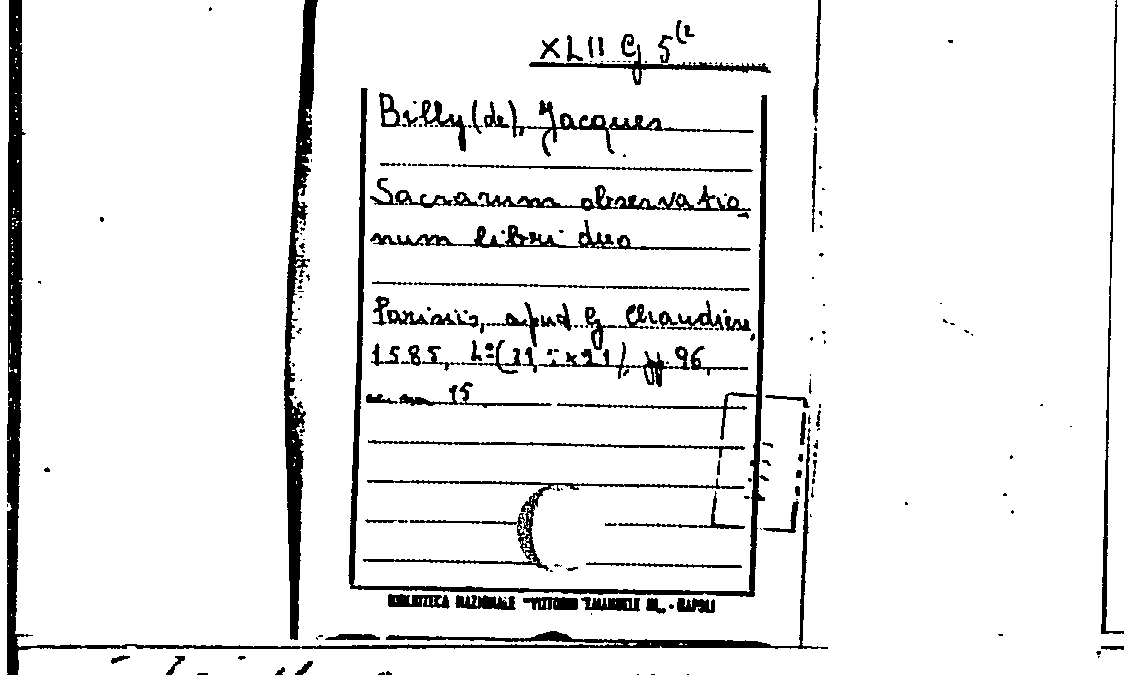 XLII G 5(2
Billy (de), Jacques
Sacrarum observatio
num libri duo
Parisiis, apud G Chaudière,
1585, pp 96,
15
BIBLIOTECA NAZIONALE "VITTORIO EMANUELE III" - NAPOLI